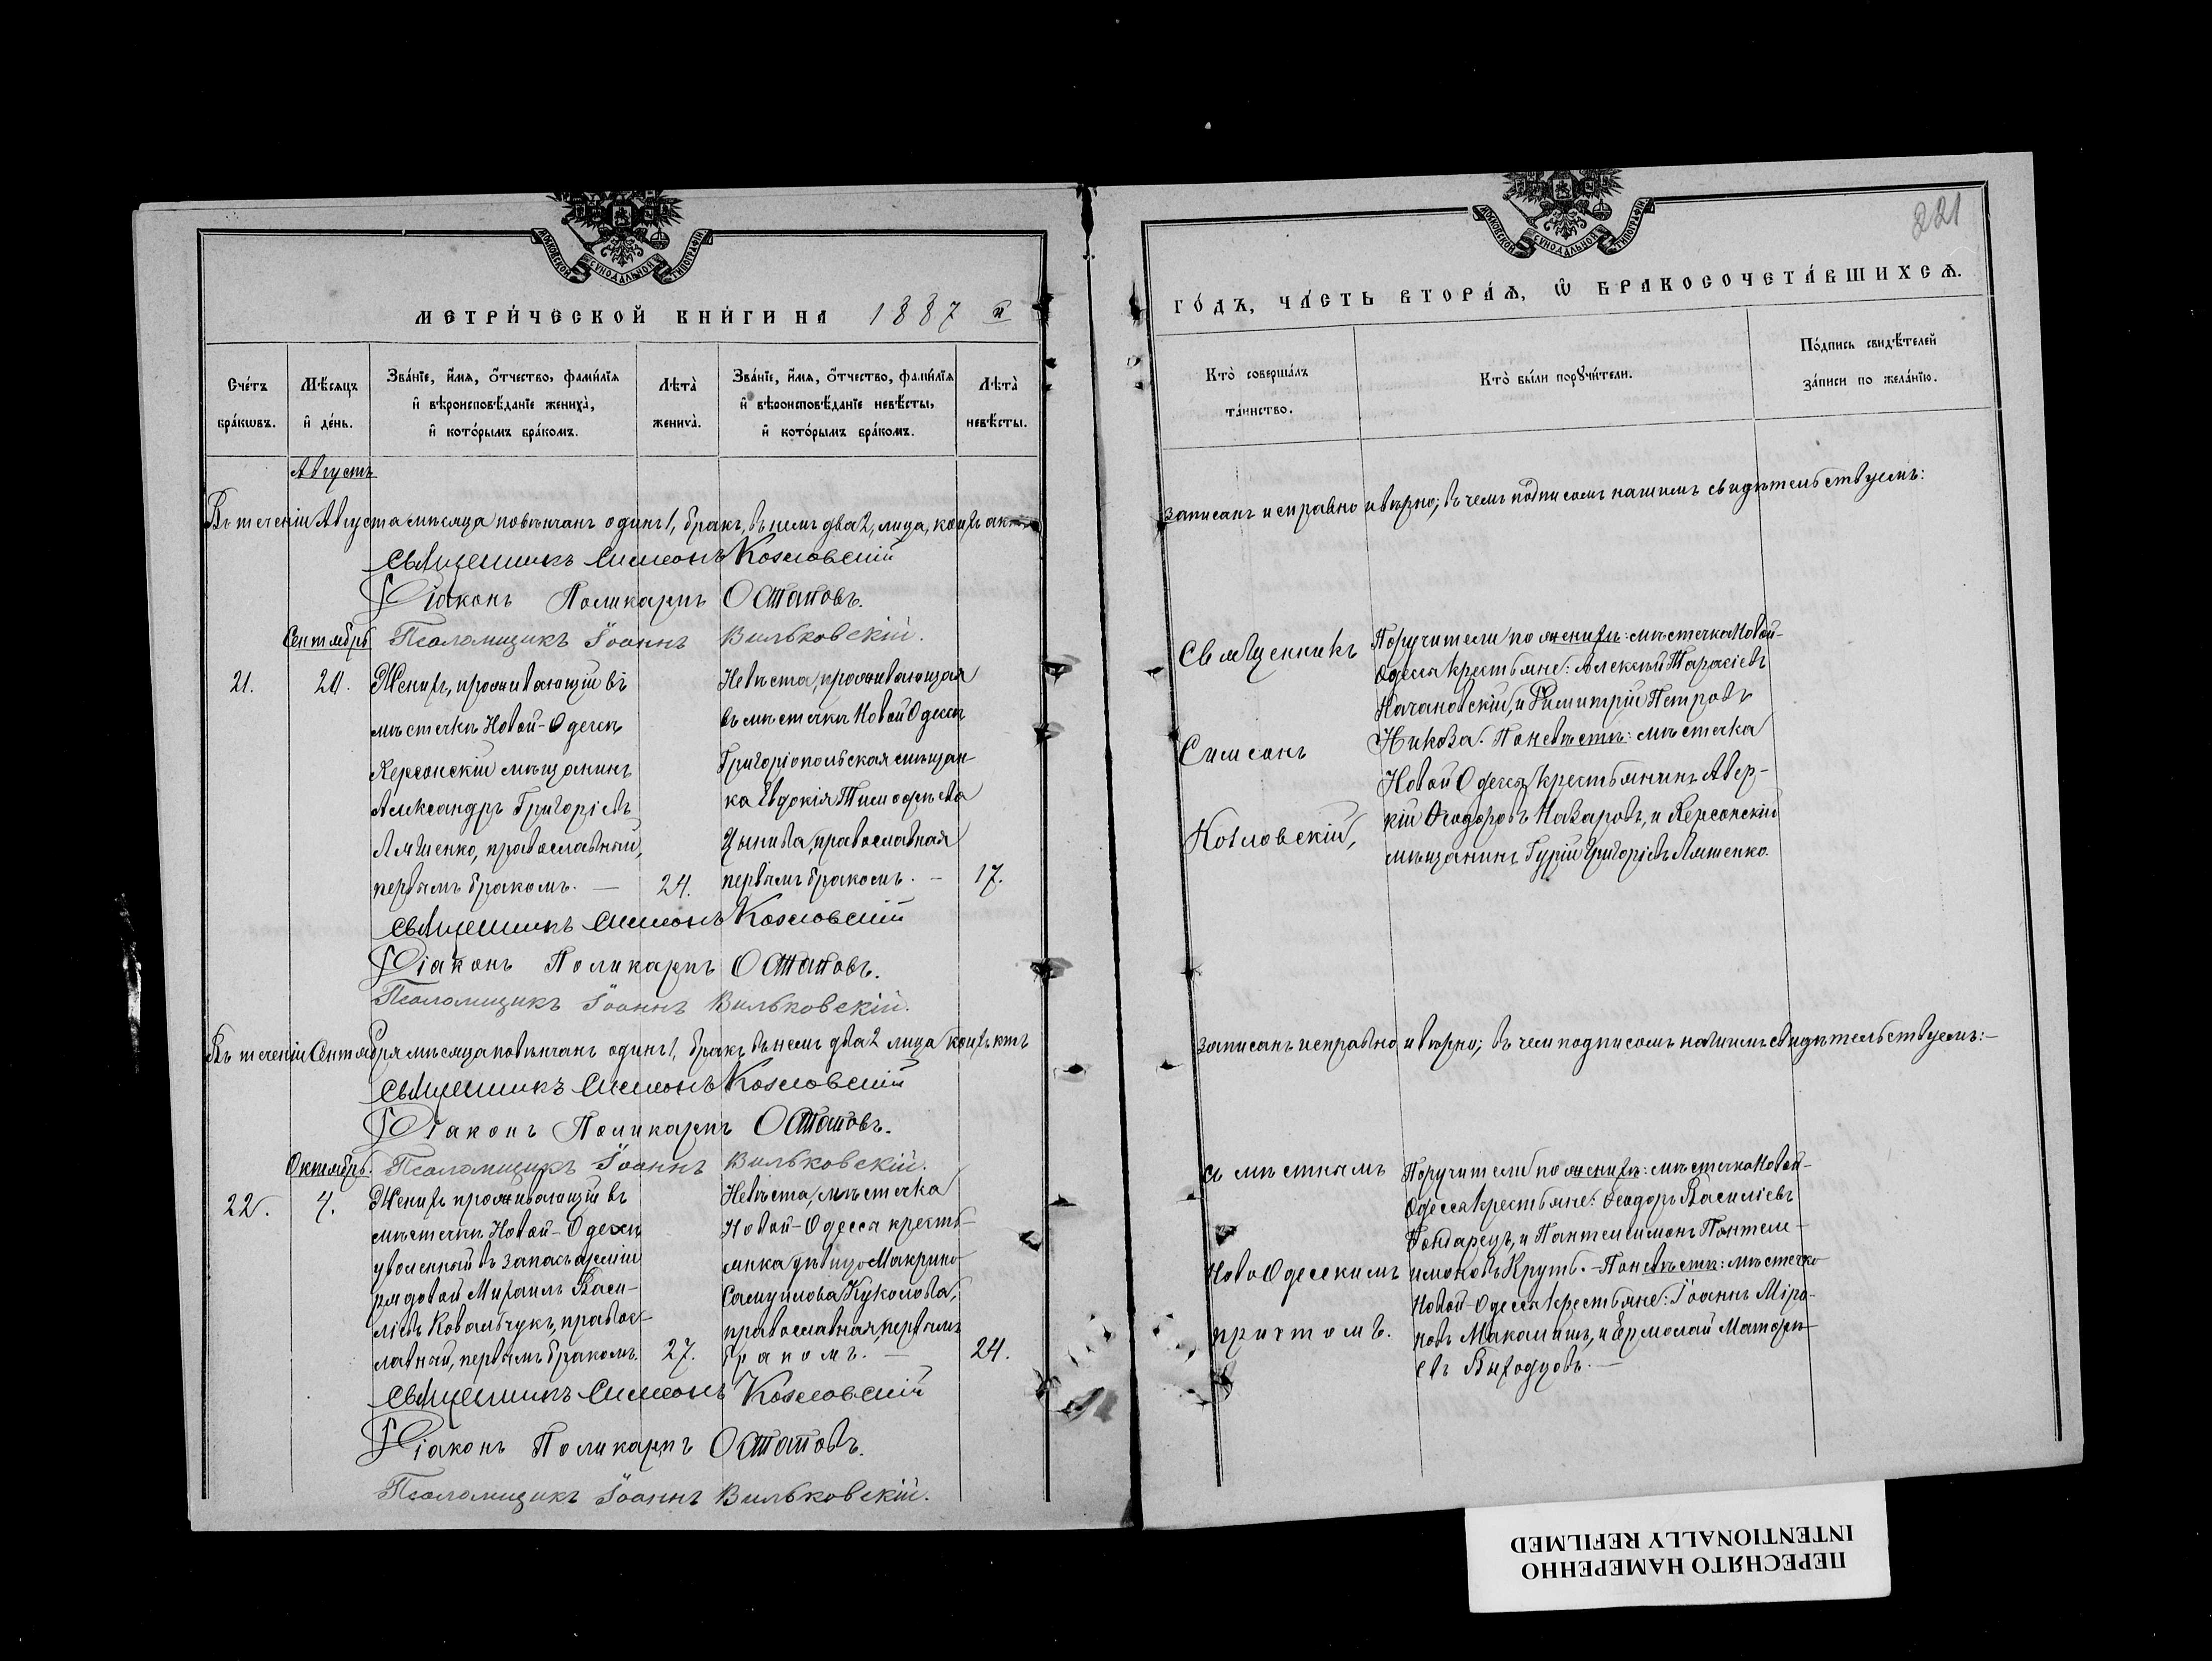 МОСКОВСКОЙ СУНОДАЛЬНОЙ ТИПОГРАФІИ
МЕТРИ́ЧЕСКОЙ КНИ́ГИ НА 1887 й
Сче́тъ бра́кωвъ.
Мѣ́сяцъ и҆ де́нь.
Зва́нїе, и҆́мя, ѻ҆́тчество, фами́лїя и҆ вѣроисповѣ́данїе жениха̀, и҆ кото́рымъ бра́комъ.
Лѣ́та̀ жениха̀.
Зва́нїе, и҆́мя, ѻ҆́тчество, фами́лїя и҆ вѣроисповѣ́данїе невѣ́сты, и҆ кото́рымъ бра́комъ.
Лѣ́та̀ невѣ́сты.
Августъ
Въ теченіи Августа мѣсяца повѣнчанъ одинъ 1, бракъ, въ немъ два 2, лица, коихъ актъ
Священникъ Симеонъ Козловскій
Діаконъ Поликарпъ Остаповъ.
Сентябрь Псаломщикъ Іоаннъ Вильковскій.
21. 20. Женихъ, проживающій въ
мѣстечкѣ Новой-Одессѣ
Херсонскій мѣщанинъ
Александръ Григоріевъ
Ляшенко, православный,
первымъ бракомъ. — 24.
Невѣста, проживающая
въ мѣстечкѣ Новой Одессѣ
Григоріопольская мѣщан-
ка Евдокія Тимофѣева
Цынева, православная
первымъ бракомъ. — 17.
Священникъ Симеонъ Козловскій
Діаконъ Поликарпъ Остаповъ.
Псаломщикъ Іоаннъ Вильковскій.
Въ теченіи Сентября мѣсяца повѣнчанъ одинъ 1, бракъ, въ немъ два 2 лица коихъ актъ
Священникъ Симеонъ Козловскій
Діаконъ Поликарпъ Остаповъ.
Октябрь. Псаломщикъ Іоаннъ Вильковскій.
22. 4. Женихъ проживающій въ
мѣстечкѣ Новой-Одессѣ
уволенный въ запасъ арміи
рядовой Михаилъ Васи-
ліевъ Ковальчукъ, правос-
лавный, первымъ бракомъ. 27.
Невѣста, мѣстечка
Новой-Одесса кресть-
янка дѣвица Макрина
Самуилова Куколова,
православная, первымъ
бракомъ. — 24.
Священникъ Симеонъ Козловскій
Діаконъ Поликарпъ Остаповъ.
Псаломщикъ Іоаннъ Вильковскій.
221
МОСКОВСКОЙ СУНОДАЛЬНОЙ ТИПОГРАФІИ
ГО́ДЪ, ЧА́СТЬ ВТОРА́Ѧ, Ѡ҆ БРАКОСОЧЕТА́ВШИХСѦ.
Кто̀ соверша́лъ та́инство.
Кто̀ бы́ли порꙋчи́тели.
По́дпись свидѣ́телей за́писи по жела́нїю.
записанъ исправно и вѣрно; въ чемъ подписомъ нашимъ свидѣтельствуемъ:
Священникъ
Симеонъ
Козловскій,
Поручители по женихѣ: мѣстечка Новой-
Одесса крестьяне: Алексѣй Тарасіевъ
Качановскій, и Димитрій Петровъ
Никова. По невѣстѣ: мѣстечка
Новой Одесса крестьянинъ Авер-
кій Ѳеодоровъ Назаровъ, и Херсонскій
мѣщанинъ Гурій Григоріевъ Ляшенко.
записанъ исправно и вѣрно; въ чемъ подписомъ нашимъ свидѣтельствуемъ:—
съ мѣстнымъ
Ново Одесскимъ
причтомъ.
Поручители по женихѣ: мѣстечка Новой-
Одесса крестьяне: Ѳеодоръ Василіевъ
Бондарецъ, и Пантелеимонъ Пантеле-
имоновъ Круть. — По невѣстѣ: мѣстечка
Новой-Одесса крестьяне: Іоаннъ Міро-
новъ Макалишъ, и Ермолай Матѳѣ-
евъ Выходцовъ. —
ПЕРЕСНЯТО НАМЕРЕННО
INTENTIONALLY REFILMED